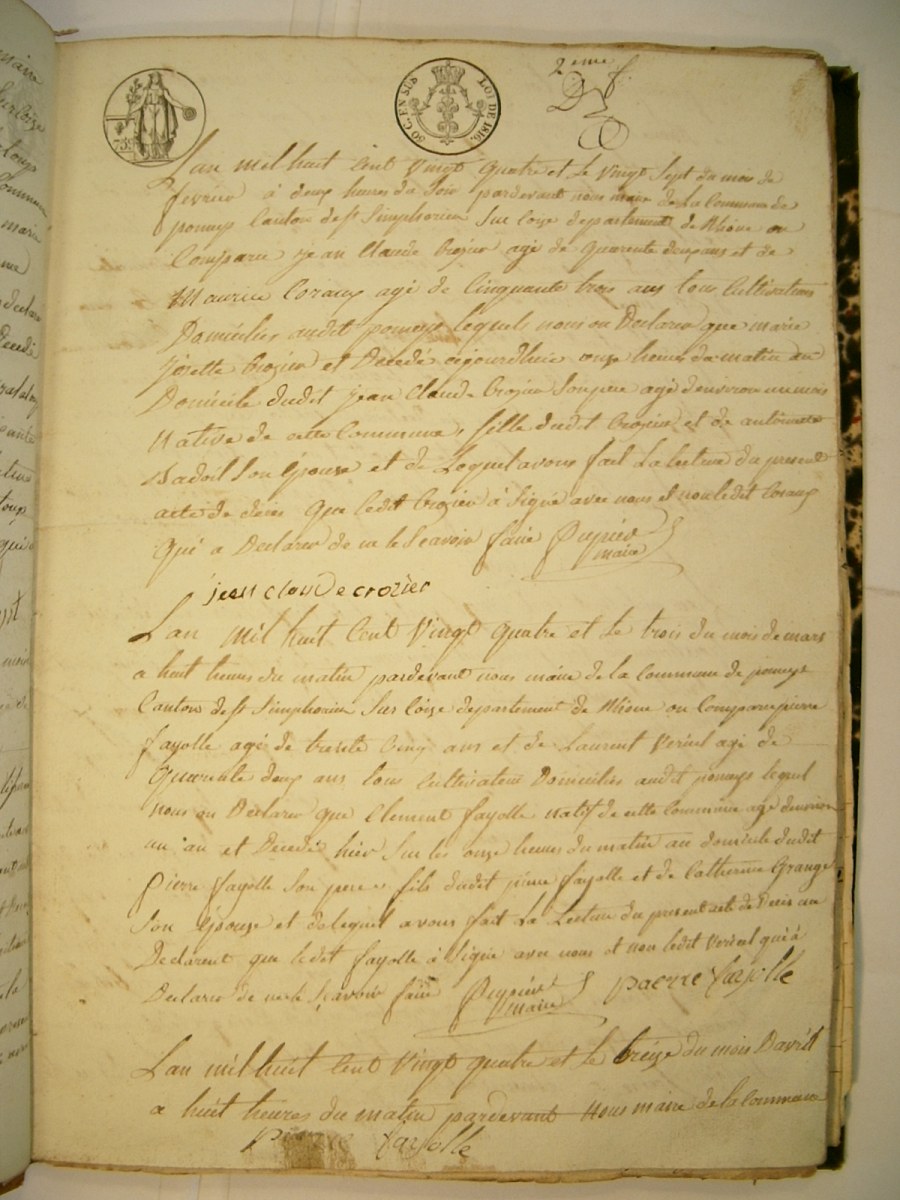 2eme f.
75c
50 C. EN SUS LOI DE 1816.
Lan mil huit Cent Vingt quatre et Le Vingt Sept du mois de
fevrier à deux heures du Soir pardevant nous maire de La Commune de
pomeys Canton de St Simphorien Sur Coize departement de Rhône ou
Comparu jean Claude Crozier agé de quarente deux ans et de
Maurice Coraux agé de Cinquante trois ans tous Cultivateurs
Domiciliés audit pomeys lequels nous on Declarer que marie
josette Crozier et Décedé aujourdhuie onze heures du matin au
Domicile dudit jean Claude Crozier Son pere agé denviron un mois
Native de cette Commune, fille dudit Crozier et de antoinette
Son épouse et de Loquel avons fait La lecture du present
acte de déces que ledit Crozier à Signé avec nous et non ledit Coraux
qui a Declarer de ne le Seavoir faire Pupier
maire
jean claude crozier
Lan mil huit Cent Vingt quatre et Le trois du mois de mars
a huit heures du matin pardevant nous maire de la Commune de pomeys
Canton de St Simphorien Sur Coize departement de Rhône ou Comparu pierre
fayolle agé de trente Cinq ans et de Laurent Vericel agé de
quarente deux ans tous Cultivateur Domiciliés audit pomeys lequel
nous on Declarer que Clement fayolle natif de cette Commune agé denviron
un an et Decedé hier Sur les onze heures du matin au domicile dudit
Pierre fayolle Son pere fils dudit pierre fayolle et de Catherine Grange
Son Epouse et delequel avons fait La Lecture du present acte de Deces au
Declarent que ledit fayolle à Signé avec nous et non ledit Vericel qui à
Declarer de ne le Sçavoir faire Pupier maire paerre faiolle
Lan mil huit Cent Vingt quatre et le treize du mois Davril
a huit heures du matin pardevant Nous maire de la Commune
faiolle